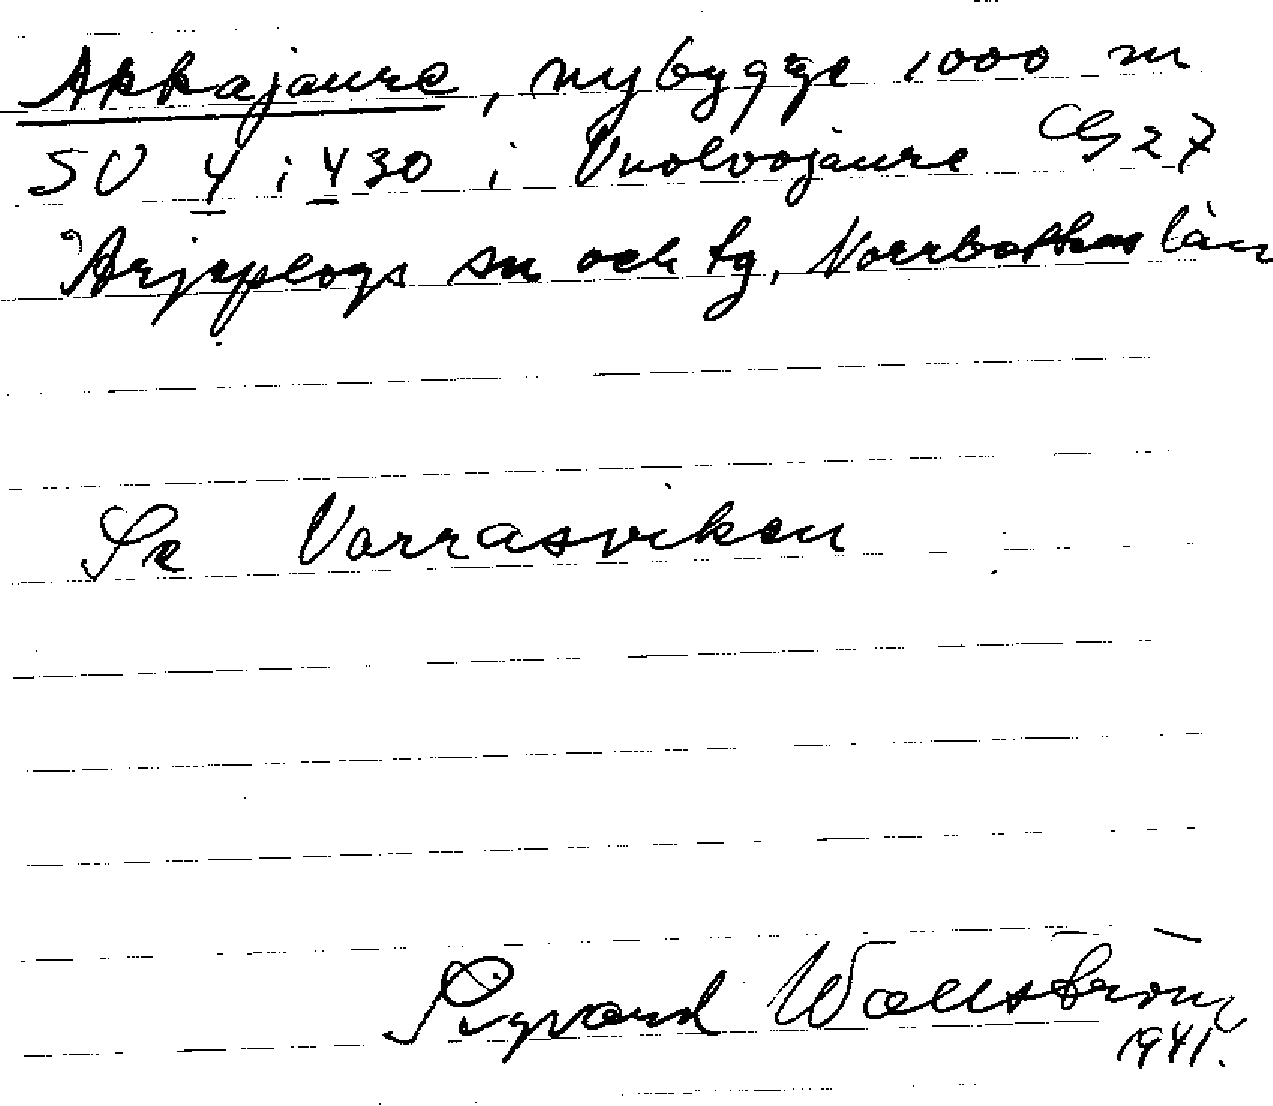 Akkajaure, nybygge 1000 m
SV 4 i 430 i Vuolvojaure CG 27
Arjeplogs sn och tg, Norrbottens län
Se Varrasviken
Sigvard Wallström
1941.